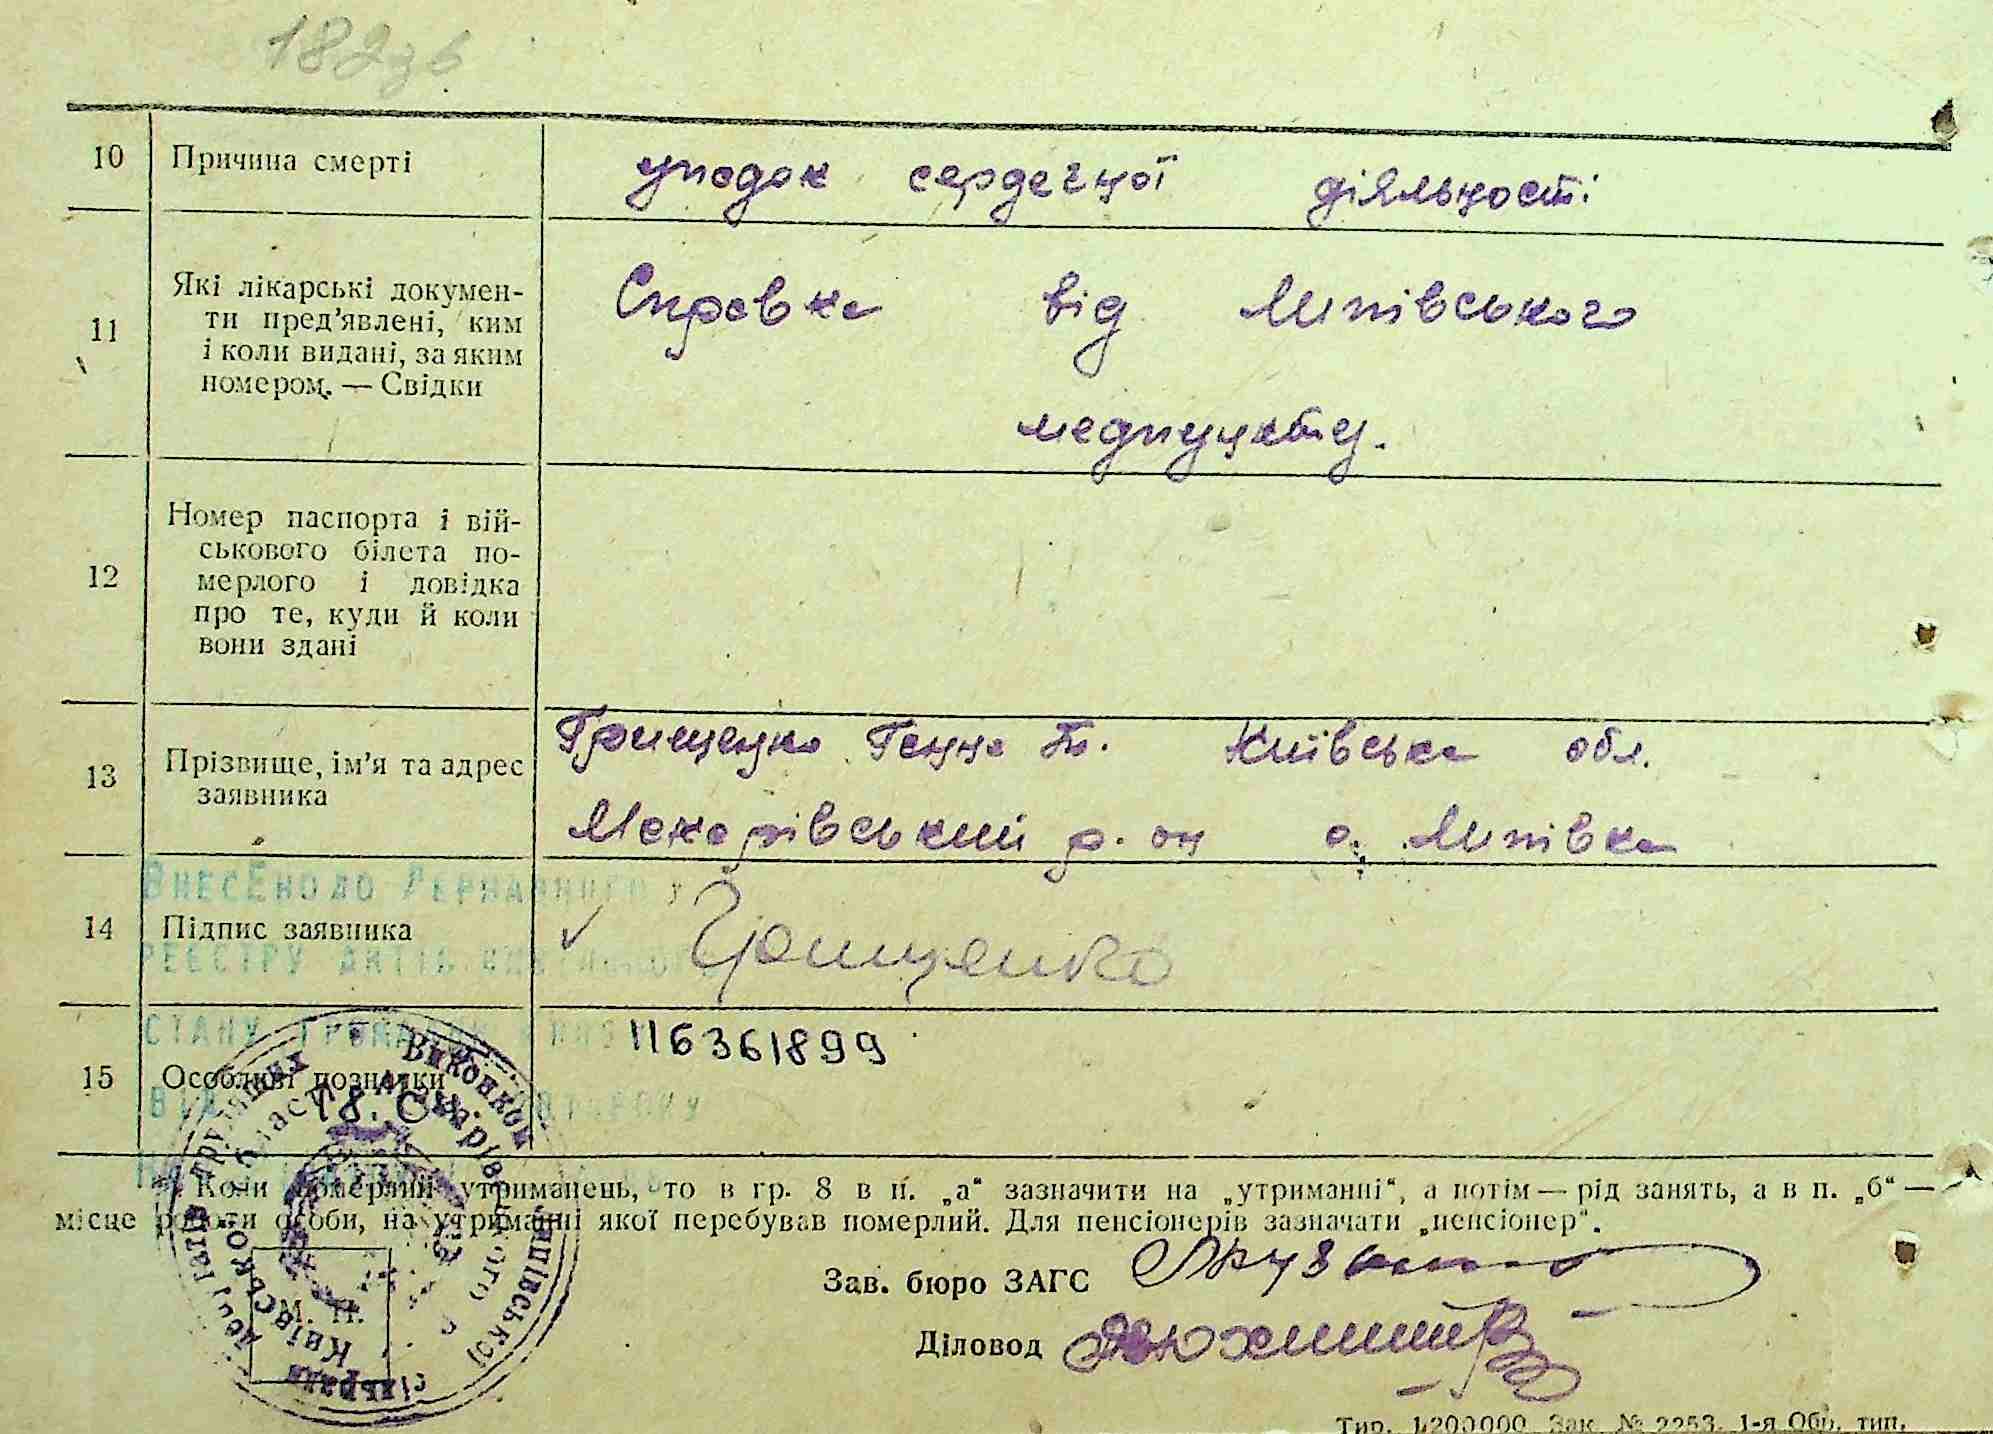 182зв
10 Причина смерті
упадок сердечної діяльності
11 Які лікарські докумен-
ти пред'явлені, ким
і коли видані, за яким
номером. — Свідки
Справка від Липівського
медпункту.
12 Номер паспорта і вій-
ськового білета по-
мерлого і довідка
про те, куди й коли
вони здані
13 Прізвище, ім'я та адрес
заявника
Грищенко Ганна Т. Київська обл.
Макарівський р-он с. Липівка
ВНЕСЕНО ДО ДЕРЖАВНОГО
14 Підпис заявника
Грищенко
РЕЄСТРУ АКТІВ ЦИВІЛЬНОГО
СТАНУ ГРОМАДЯН
116361899
15 Особливі позначки
Виконком
Макарівського
Київської області
сільради
депутатів трудящих
Коли померлий утриманець, то в гр. 8 в п. „а“ зазначити на „утриманні“, а потім — рід занять, а в п. „б“ —
місце роботи особи, на утриманні якої перебував померлий. Для пенсіонерів зазначати „пенсіонер“.
Зав. бюро ЗАГС
Діловод
М. П.
Тир. 1200000 Зак. № 2253. 1-я Обр. тип.